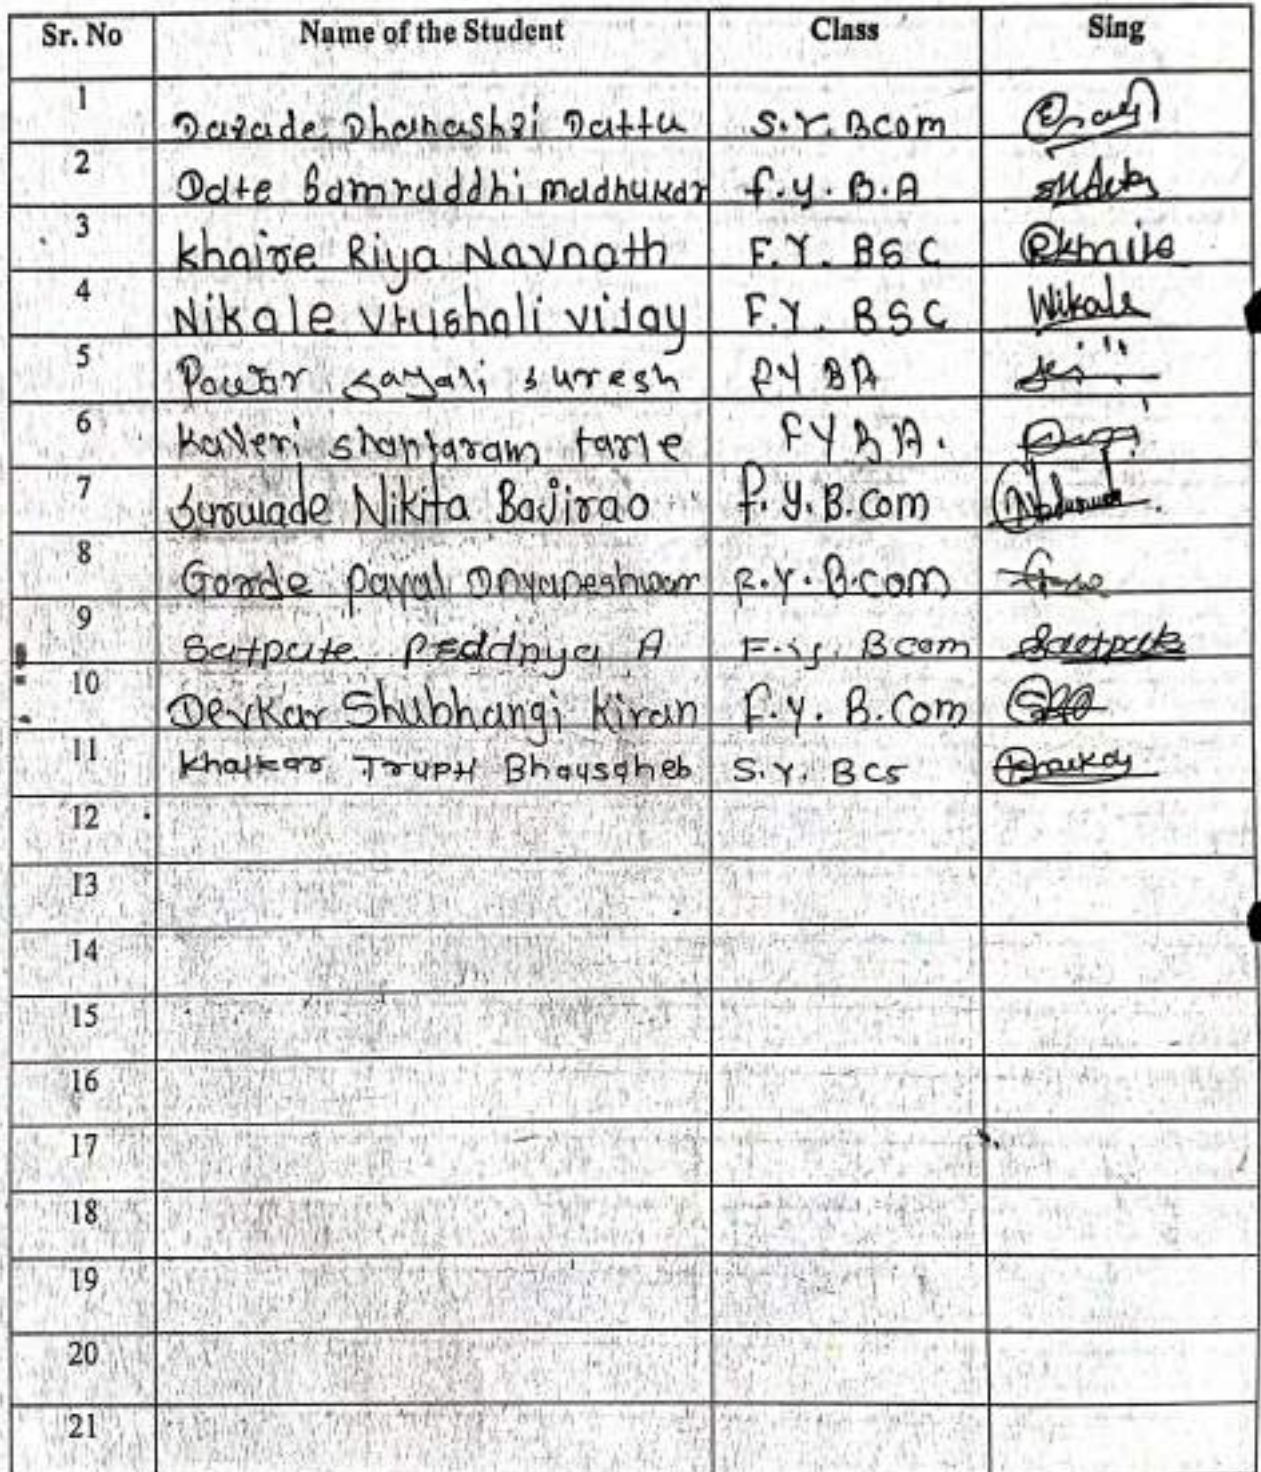 Sr. No Name of the Student Class Sing
1 Darade Dhanashri Dattu S.Y. Bcom
2 Date Samruddhi madhukar f.y. B.A
3 khaire Riya Navnath F.Y. BSC Rkhaire
4 Nikale Vrushali vijay F.Y. BSC Nikale
5 Pawar sayali suresh FY BA
6 Kaveri shantaram tarle FYBA.
7 Surwade Nikita Bajirao f.y.B.com
8 Gorde payal Dnyaneshwar F.Y.B.com
9 Satpute A F.y. Bcom Satpute
10 Devkar Shubhangi kiran F.y. B.Com
11 Khalkar Trupti Bhausaheb S.Y. BCS
12
13
14
15
16
17
18
19
20
21